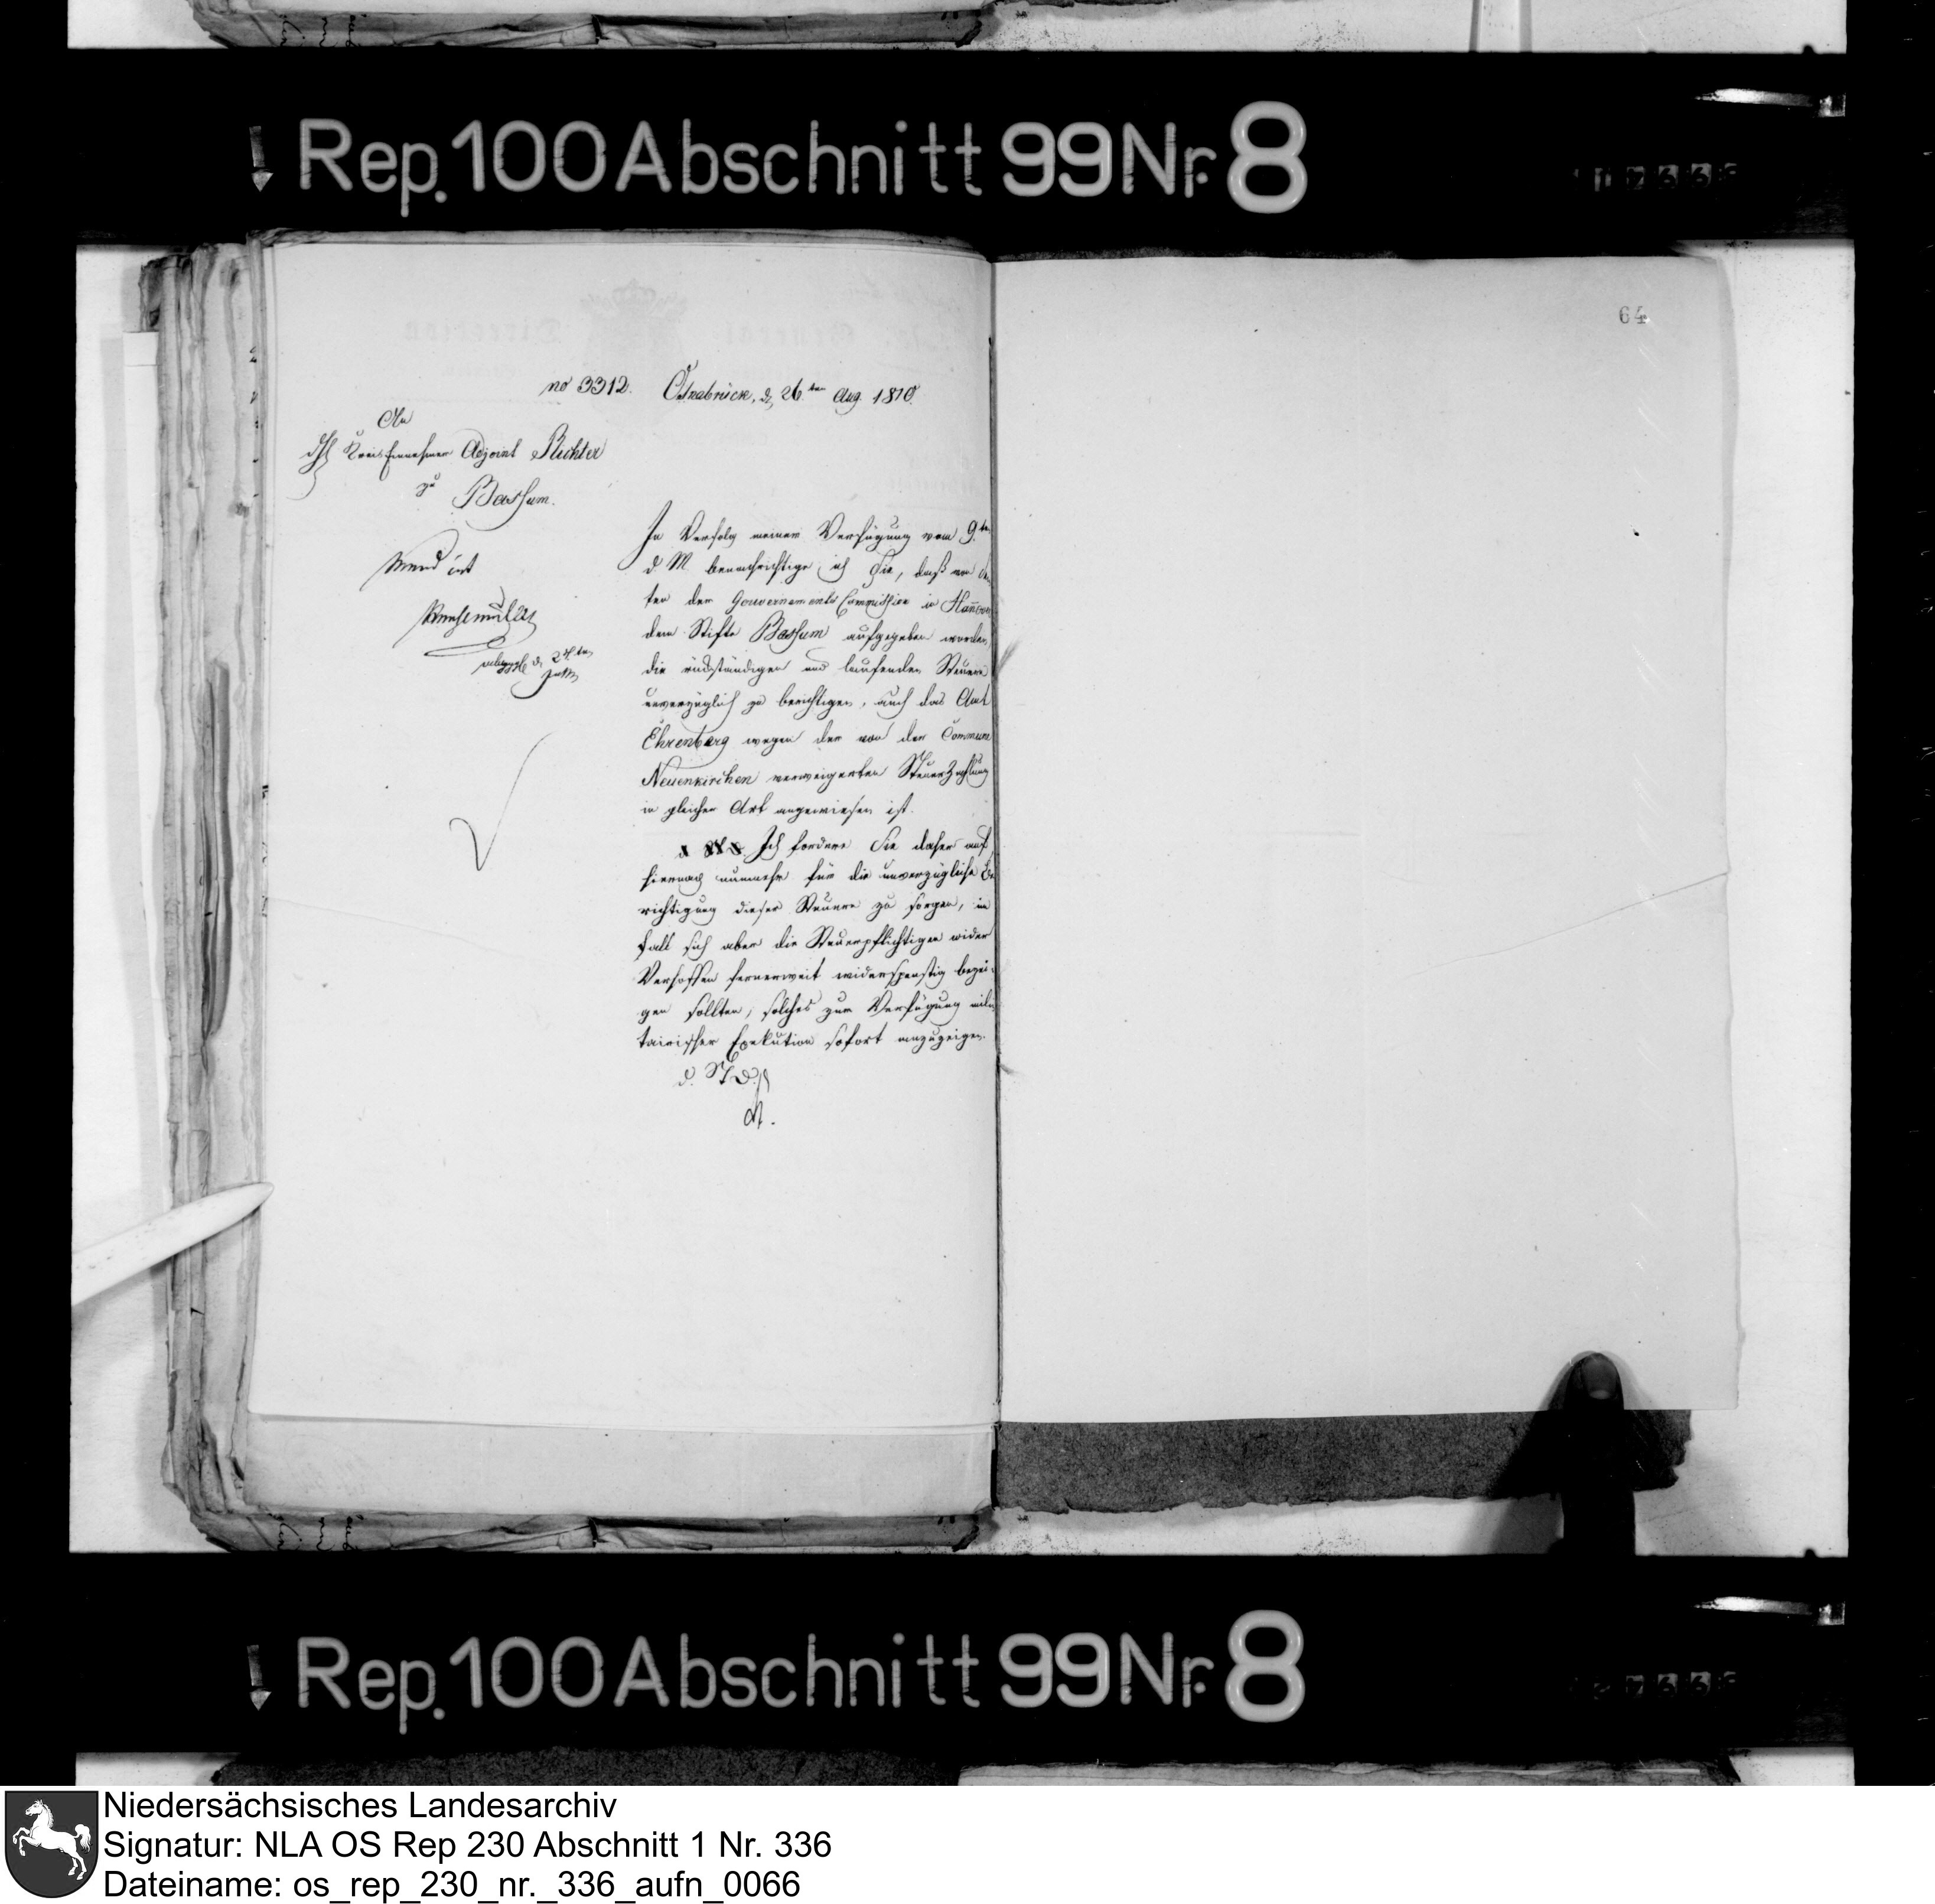 Rep. 100 Abschnitt 99 Nr. 8
64
no 3312. Osnabrück, d. 26.ten Aug. 1810.
An
Kreis Einnehmer Adjoint Richter
zu
Bassum.
In Verfolg meiner Verfügung vom 9.ten
d M. benachrichtige ich Sie, daß von
ten der Gouvernements Commission in Hannover
dem Stifte Bassum aufgegeben worden,
die rückständigen und laufenden Steuern
unverzüglich zu berichtigen, auch das Amt
Ehrenburg wegen der von der Commune
Neuenkirchen verweigerten Steuer Zahlung
in gleicher Art angewiesen ist.
Ich fordere Sie daher auf
hiernach nunmehr für die unverzügliche Be
richtigung dieser Steuern zu sorgen, im
Fall sich aber die Steuerpflichtigen wider
Verhoffen fernerweit widerspenstig bezei-
gen sollten, solches zur Verfügung mili
tairischer Exekution sofort anzuzeigen.
d.
Rep. 100 Abschnitt 99 Nr. 8
Niedersächsisches Landesarchiv
Signatur: NLA OS Rep 230 Abschnitt 1 Nr. 336
Dateiname: os_rep_230_nr._336_aufn_0066